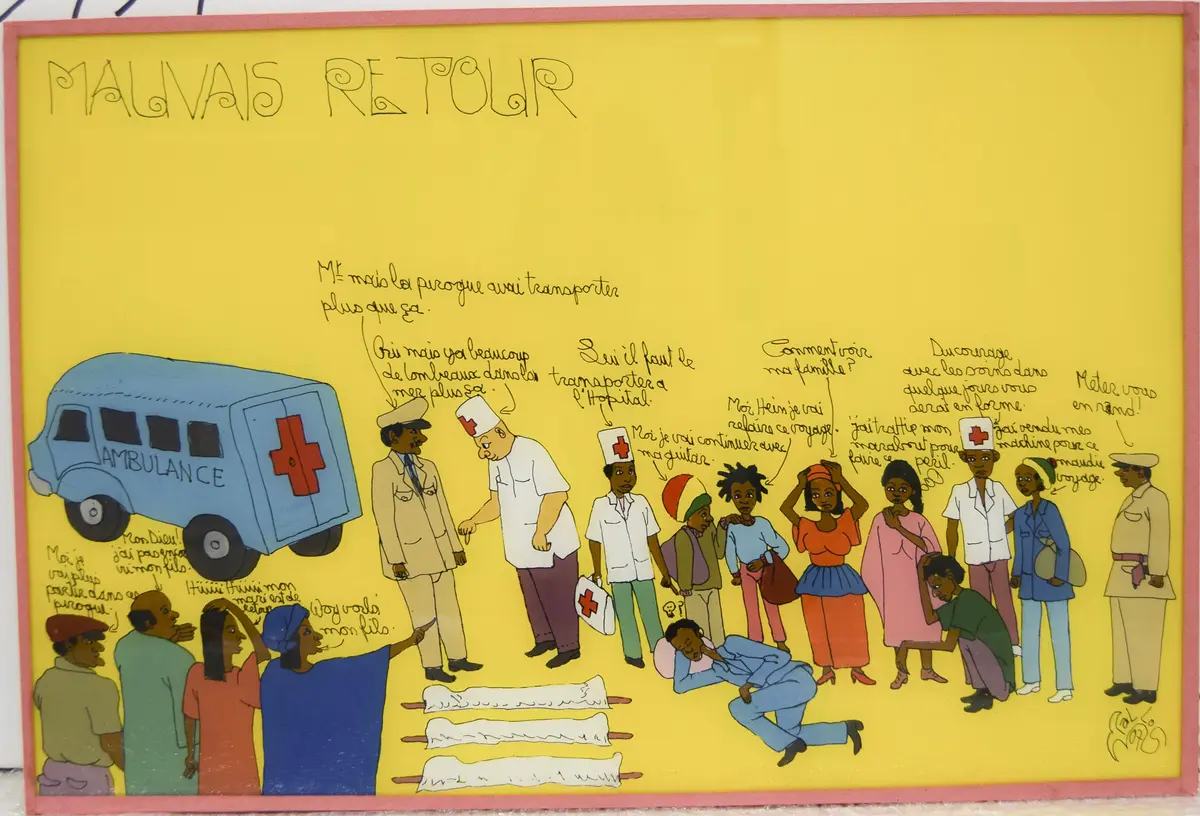 MAUVAIS RETOUR
Mr mais la pirogue avai transporter
plus que ça.
Oui mais ya beaucoup
de tombeaux dans la
mer plus ça.
Lui il faut le
transporter a
l'Hopital.
Moi je vai continuer avec
ma guitar.
Moi Hein je vai
refaire ce voyage.
Comment voir
ma famille?
j'ai trattip mon
marabout pour
faire ce péril
Ducourage
avec les soins dans
quelque jours vous
serai en forme.
j'ai vendu mes
machine pour ce
maudit
voyage.
Meter vous
en rand!
AMBULANCE
Moi je
vai plus
partir dans ce
pirogue!
Mon Dieu!
j'ai pas enco
vu mon fils.
Hiiiii Hiiiii mon
mari est de
retour
Woy voila
mon fils.